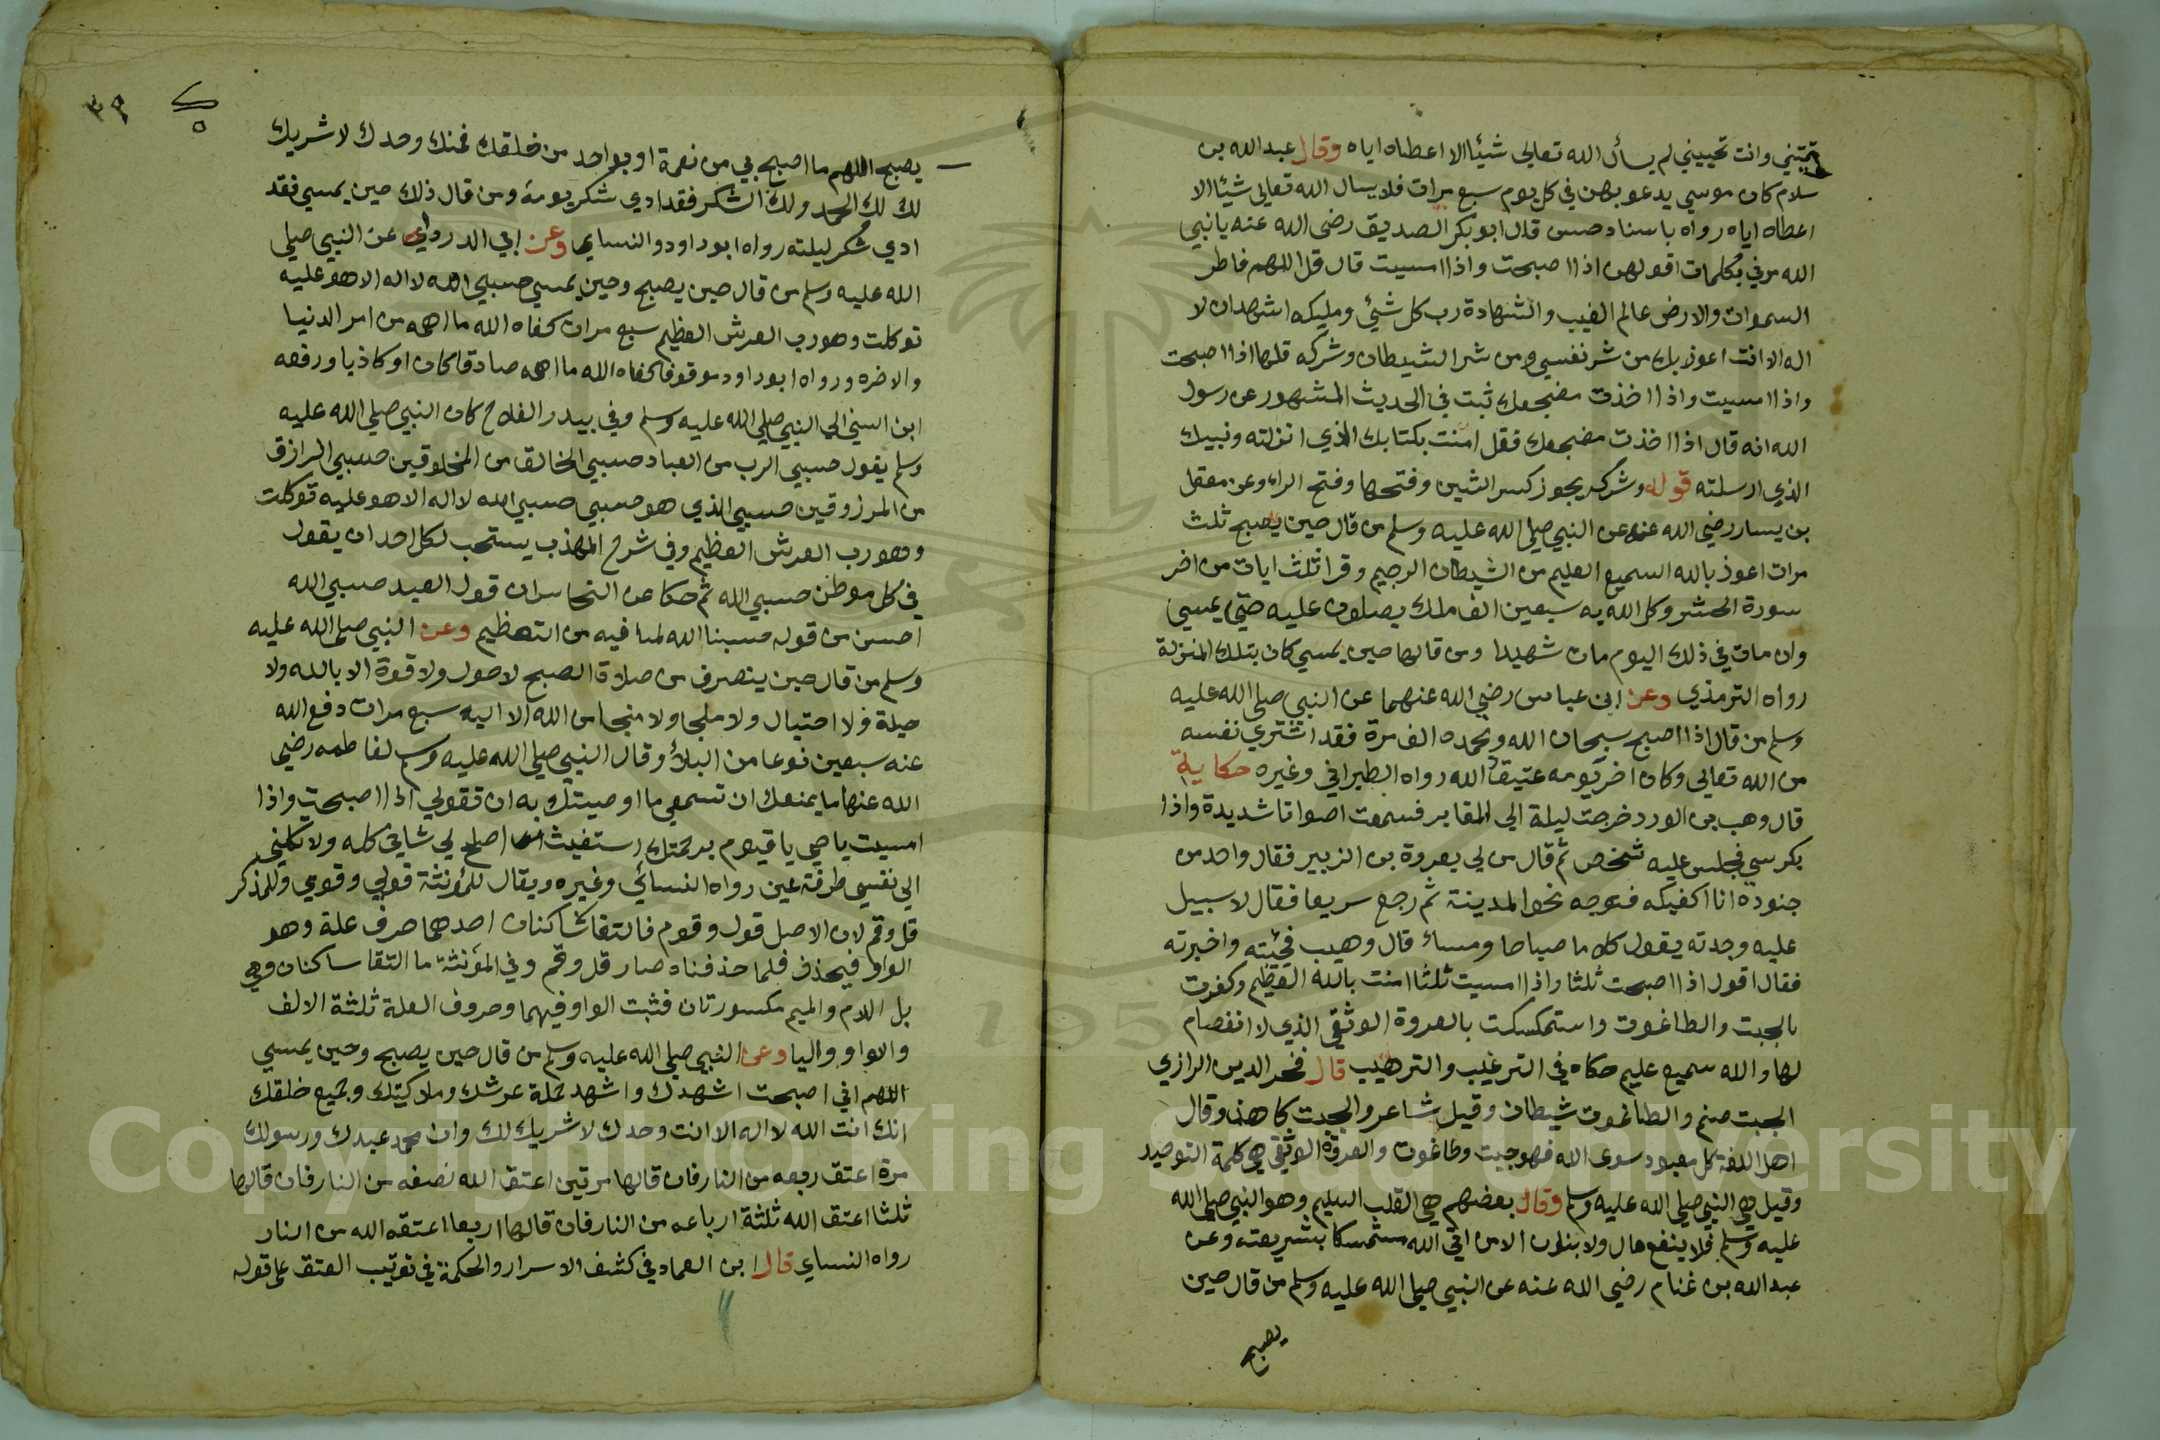 تميتني وانت تحييني لم يسأل الله تعالى شيئا الا اعطاه اياه وقال عبد الله بن
سلام كان موسى يدعو بهن في كل يوم سبع مرات فلا يسال الله تعالى شيئا الا
اعطاه اياه رواه باسناد حسن قال ابو بكر الصديق رضى الله عنه يا نبي
الله مرني بكلمات اقولهن اذا اصبحت واذا امسيت قال قل اللهم فاطر
السموات والارض عالم الغيب والشهادة رب كل شئ ومليكه اشهد ان لا
اله الا انت اعوذ بك من شر نفسي ومن شر الشيطان وشركه قلها اذا اصبحت
واذا امسيت واذا اخذت مضجعك ثبت في الحديث المشهور عن رسول
الله انه قال اذا اخذت مضجعك فقل امنت بكتابك الذي انزلته ونبيك
الذي ارسلته قوله وشركه يجوز كسر الشين وفتحها وفتح الراء وعن معقل
بن يسار رضي الله عنه عن النبي صلى الله عليه وسلم من قال حين يصبح ثلث
مرات اعوذ بالله السميع العليم من الشيطان الرجيم وقرا ثلث ايات من اخر
سورة الحشر وكل الله به سبعين الف ملك يصلون عليه حتي يمسي
وان مات في ذلك اليوم مات شهيدا ومن قالها حين يمسي كان بتلك المنزلة
رواه الترمذي وعن ابن عباس رضي الله عنهما عن النبي صلى الله عليه
وسلم من قال اذا اصبح سبحان الله وبحمده الف مرة فقد اشتري نفسه
من الله تعالى وكان اخر يومه عتيقا لله رواه الطبراني وغيره حكاية
قال وهب بن الورد خرجت ليلة الى المقابر فسمعت اصواتا شديدة واذا
بكرسي فجلس عليه شخص ثم قال من لي بعروة بن الزبير فقال واحد من
جنوده انا اكفيكه فتوجه نحو المدينة ثم رجع سريعا فقال لا سبيل
عليه وجدته يقول كلاما صباحا ومساء قال وهيب فجئته واخبرته
فقال اقول اذا اصبحت ثلثا واذا امسيت ثلثا امنت بالله العظيم وكفرت
بالجبت والطاغوت واستمسكت بالعروة الوثقى الذي لا انفصام
لها والله سميع عليم حكاه في الترغيب والترهيب قال فخر الدين الرازي
الجبت صنم والطاغوت شيطان وقيل شاعر والجبت كاهن وقال
اهل اللغة كل معبود سوى الله فهو جبت وطاغوت والعروة الوثقي هي كلمة التوحيد
وقيل هي النبي صلى الله عليه وسلم وقال بعضهم هي القلب السليم وهو النبي صلى الله
عليه وسلم فلا ينفع مال ولا بنون الا من اتى الله متمسكا بشريعته وعن
عبد الله بن غنام رضي الله عنه عن النبي صلى الله عليه وسلم من قال حين
يصبح
٣٩
يصبح اللهم ما اصبح بي من نعمة او بواحد من خلقك فمنك وحدك لا شريك
لك لك الحمد ولك الشكر فقد ادي شكر يومه ومن قال ذلك حين يمسي فقد
ادي شكر ليلته رواه ابو داود والنساي وعن ابي الدرداي عن النبي صلى
الله عليه وسلم من قال حين يصبح وحين يمسي حسبي الله لا اله الا هو عليه
توكلت وهو رب العرش العظيم سبع مرات كفاه الله ما اهمه من امر الدنيا
والاخره ورواه ابو داود موقوفا كفاه الله ما اهمه صادقا كان او كاذبا ورفعه
ابن السني الى النبي صلى الله عليه وسلم وفي بيدر الفلاح كان النبي صلى الله عليه
وسلم يقول حسبي الرب من العباد حسبي الخالق من المخلوقين حسبي الرازق
من المرزوقين حسبي الذي هو حسبي حسبي الله لا اله الا هو عليه توكلت
وهو رب العرش العظيم وفي شرح المهذب يستحب لكل احد ان يقول
في كل موطن حسبي الله ثم حكا عن النحاس ان قول العبد حسبي الله
احسن من قوله حسبنا الله لما فيه من التعظيم وعن النبي صلى الله عليه
وسلم من قال حين ينصرف من صلاة الصبح لا حول ولا قوة الا بالله ولا
حيلة ولا احتيال ولا ملجا ولا منجا من الله الا اليه سبع مرات دفع الله
عنه سبعين نوعا من البلاء وقال النبي صلى الله عليه وسلم لفاطمه رضي
الله عنها ما يمنعك ان تسمعي ما اوصيتك به ان تقولي اذا اصبحت واذا
امسيت يا حي يا قيوم برحمتك استغيث اصلح لي شاني كله ولا تكلني
الى نفسي طرفة عين رواه النسائي وغيره ويقال للمؤنثة قولي وقومي وللمذكر
قل وقم لان الاصل قول وقوم فالتقا ساكنان احدهما حرف علة وهو
الواو فيحذف فلما حذفناه صار قل وقم وفي المؤنثة ما التقا ساكنان وهي
بل اللام والميم مكسورتان فثبت الواو فيهما وحروف العلة ثلثة الالف
والواو واليا وعن النبي صلى الله عليه وسلم من قال حين يصبح وحين يمسي
اللهم اني اصبحت اشهدك واشهد حملة عرشك وملائكتك وجميع خلقك
انك انت الله لا اله الا انت وحدك لا شريك لك وان محمد عبدك ورسولك
مرة اعتق ربعه من النار فان قالها مرتين اعتق الله نصفه من النار فان قالها
ثلثا اعتق الله ثلثة ارباعه من النار فان قالها اربعا اعتقه الله من النار
رواه النساي قال ابن العماد في كشف الاسرار والحكمة في ترتيب العتق على قوله
Copyright © King Saud University